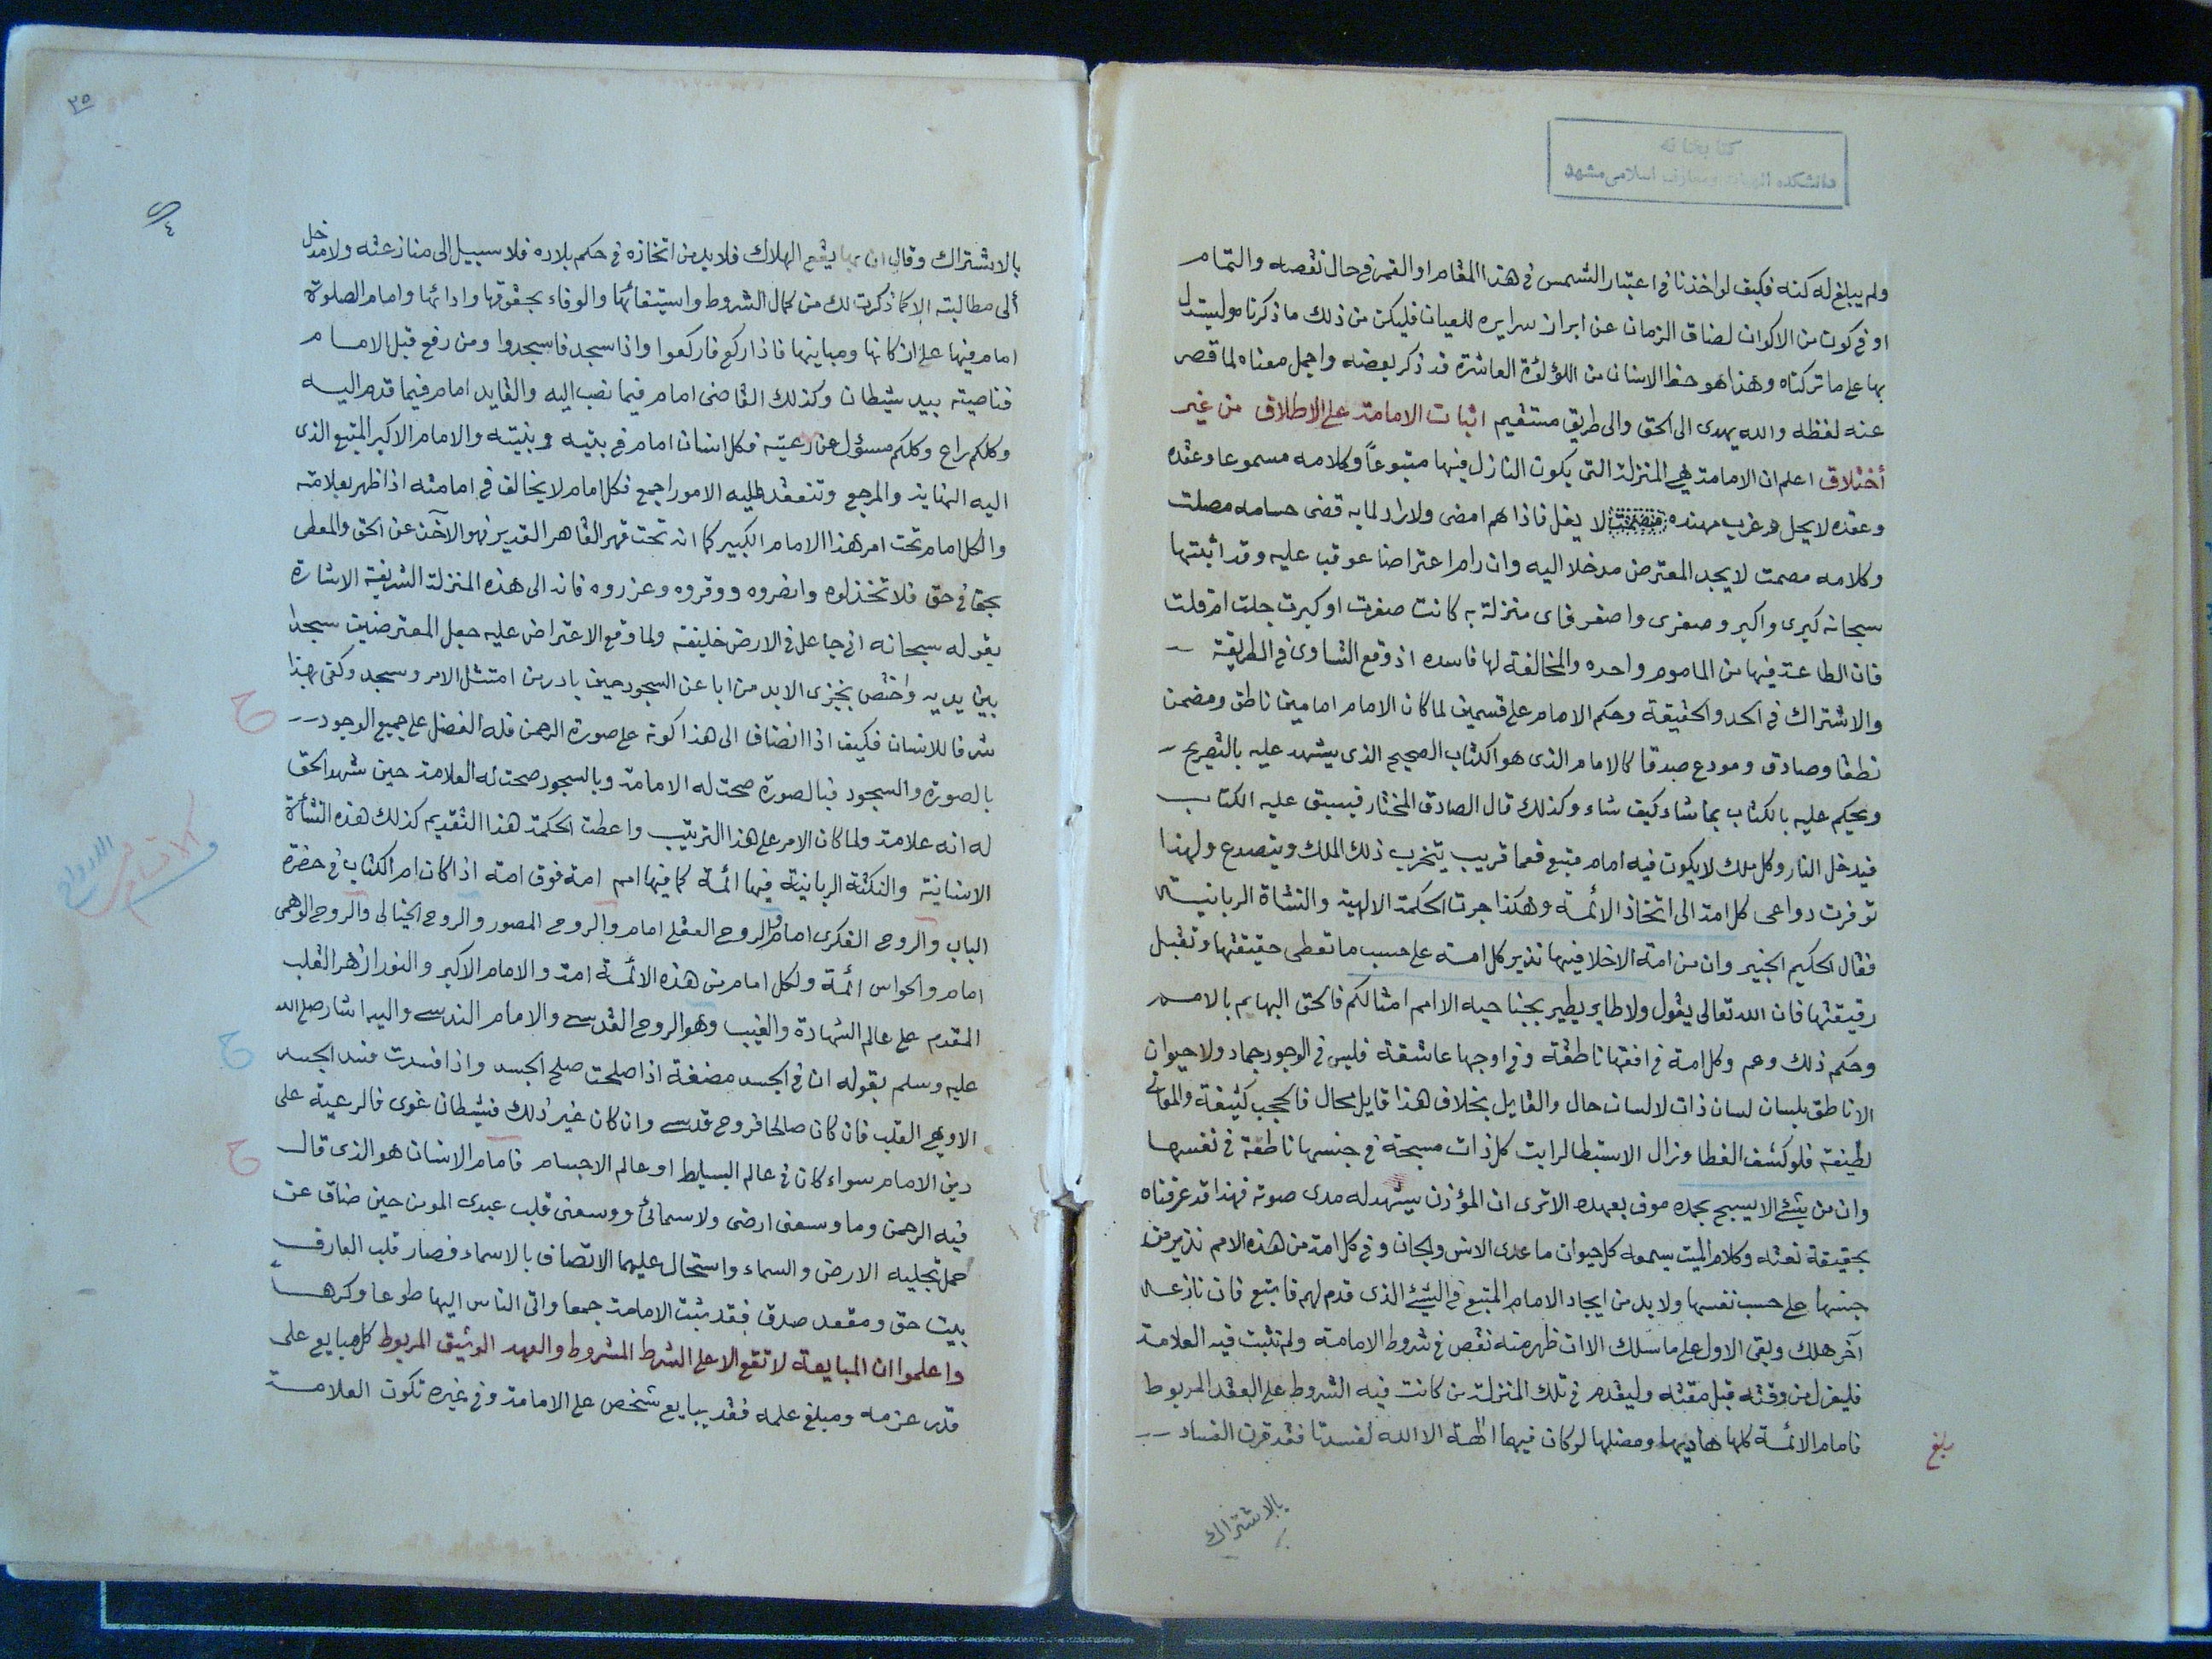 كتابخانه
دانشكده الهيات ومعارف اسلامى مشهد
ولم يبلغ له كنه فكيف لو اخذنا فى اعتبار الشمس فى هذا المقام او القمر فى حال نقصه والتمام
او فى كون من الاكوان لضاق الزمان عن ابراز سرايره للعيان فليكن من ذلك ما ذكرناه وليستدل
بها على ما تركناه وهذا هو حظ الانسان من اللؤلؤة العاشرة قد ذكر بعضه واجمل معناه لما قصر
عنه لفظه والله يهدى الى الحق والى طريق مستقيم اثبات الامامة على الاطلاق من غير
أختلاق اعلم ان الامامة هى المنزلة التى يكون النازل فيها متبوعاً وكلامه مسموعا وعقده
وعقده لا يحل وغرب مهنده لا يفل فاذا هم امضى ولا راد لما به قضى حسامه مصلت
وكلامه مصمت لا يجد المعترض مدخلا اليه وان رام اعتراضا عوقب عليه وقد اثبتها
سبحانه كبرى واكبر وصغرى واصغر فاى منزلة به كانت صغرت او كبرت جلت ام قلت
فان الطاعة فيها من الماموم واحده والمخالفة لها فاسده اذ وقع التساوى فى الطريقة
والاشتراك فى الحد والحقيقة وحكم الامام على قسمين لما كان الامام امامين ناطق ومضمن
نطقا وصادق ومودع صدقا كالامام الذى هو الكتاب الصحيح الذى يشهد عليه بالتصريح
ويحكم عليه بالكتاب بما شاء كيف شاء وكذلك قال الصادق المختار فيسبق عليه الكتاب
فيدخل النار وكل ملك لا يكون فيه امام متبع فعما قريب يتخرب ذلك الملك ويتصدع ولهذا
توفرت دواعى كل امة الى اتخاذ الائمة وهكذا جرت الحكمة الالهية والنشاة الربانية
فقال الحكيم الخبير وان من امة الا خلا فيها نذير كل امة على حسب ما تعطى حقيقتها وتقبل
رقيقتها فان الله تعالى يقول ولا طاير يطير بجناحيه الا امم امثالكم فالحق البهايم بالامم
وحكم ذلك وعم وكل امة فى افقها ناطقة وفى اوجها عاشقة فليس فى الوجود جماد ولا حيوان
الا ناطق بلسان لسان ذات لا لسان حال والقايل بخلاف هذا قايل محال فالحجب كثيفة والمعانى
لطيفة فلو كشف الغطا وزال الاستبطا لرايت كل ذات مسبحة فى جنسها ناطقة فى نفسها
وان من شئ الا يسبح بحمده موف بعهده الا ترى ان المؤذن يشهد له مدى صوته فهذا قد عرفناه
بحقيقة نعته وكلام الميت يسمعه كل حيوان ما عدى الانس والجان وفى كل امة من هذه الامم نذير من
جنسها على حسب نفسها ولا بد من ايجاد الامام المتبع فى الشئ الذى قدم لهم فاتبع فان نازعه
آخر هلك وبقى الاول على ما سلك الا ان ظهر منه نقص فى شروط الامامة ولم تثبت فيه العلامة
فليعزل من وقته قبل مقته وليقدم فى تلك المنزلة من كانت فيه الشروط على العقد المربوط
فامام الائمة كلها هاديها ومضلها لو كان فيهما الهة الا الله لفسدتا فقد قرن الفساد
بلغ
بالاشتراك
٣٥
بالاشتراك وقال ان بها يقع الهلاك فلا بد من اتخاذه فى حكم بلاده فلا سبيل الى منازعته ولا مدخل
ألى مطالبته الا كما ذكرت لك من كمال الشروط واستيفائها والوفاء بحقوقها وادائها وامام الصلوة
امام فيها على اركانها ومباينها فاذا ركع فاركعوا واذا سجد فاسجدوا ومن رفع قبل الامام
فناصيته بيد شيطان وكذلك القاضى امام فيما نصب اليه والقايد امام فيما قدم اليه
وكلكم راع وكلكم مسؤل عن رعيته فكل انسان امام فى بيته وبنيته والامام الاكبر المتبع الذى
اليه النهاية والمرجع وتنعقد عليه الامور اجمع فكل امام لا يخالف فى امامته اذا ظهر بعلامته
والكل امام تحت امر هذا الامام الكبير كما انه تحت قهر القاهر القدير فهو الآخذ عن الحق والمعطى
بحق فى حق فلا تخذلوه وانصروه ووقروه وعزروه فانه الى هذه المنزلة الشريفة الاشارة
بقوله سبحانه انى جاعل فى الارض خليفة ولما وقع الاعتراض عليه جعل المعترضين سجدا
بين يديه واختص بخزى الابد من ابا عن السجود حين بادر من امتثل الامر وسجد وكفى بهذا
شرفا للانسان فكيف اذا انضاف الى هذا كونه على صورة الرحمن فله الفضل على جميع الوجود
بالصورة والسجود فبالصورة صحت له الامامة وبالسجود صحت له العلامة حين شهد الحق
له انه علامة ولما كان الامر على هذا الترتيب واعطت الحكمة هذا التقديم كذلك هذه النشأة
الانسانية والنكتة الربانية فيها ائمة كما فيها امم امة فوق امة اذا كان ام الكتاب فى حضرة
الباب والروح الفكرى امام والروح العقلى امام والروح المصور والروح الخيالى والروح الوهمى
امام والحواس ائمة ولكل امام من هذه الائمة امة والامام الاكبر والنور الازهر القلب
المقدم على عالم الشهادة والغيب وهو الروح القدسى والامام الندسى واليه اشار صلى الله
عليه وسلم بقوله ان فى الجسد مضغة اذا صلحت صلح الجسد واذا فسدت فسد الجسد
الا وهى القلب فان كان صالحا فروح قدسى وان كان غير ذلك فشيطان غوى فالرعية على
دين الامام سواء كان فى عالم البسايط او عالم الاجسام فامام الانسان هو الذى قال
فيه الرحمن وما وسعنى ارضى ولا سمائى ووسعنى قلب عبدى المومن حين ضاق عن
حمل تجليه الارض والسماء واستحال عليهما الاتصاف بالاسماء فصار قلب العارف
بيت حق ومقعد صدق فقد ثبت الامامة جمعا واتى الناس اليها طوعا وكرها
واعلموا ان المبايعة لا تقع الا على الشرط المشروط والعهد الوثيق المربوط كل مبايع على
قدر عزمه ومبلغ علمه فقد يبايع شخص على الامامة وفى غيره تكون العلامة